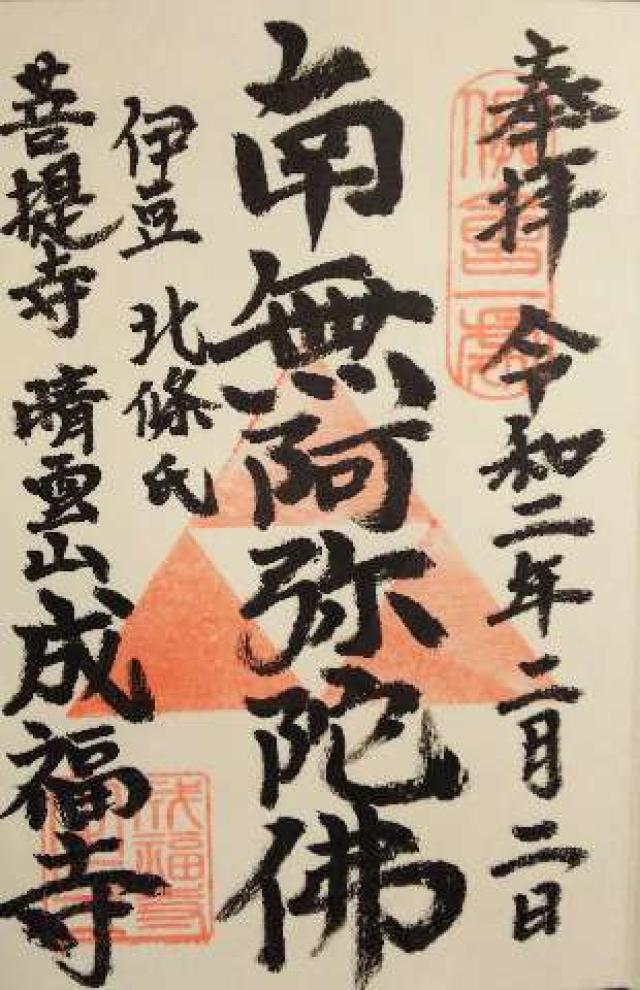 奉拝 令和二年二月二日
南無阿弥陀佛
伊豆 北條氏
菩提寺 晴雲山 成福寺
成福寺